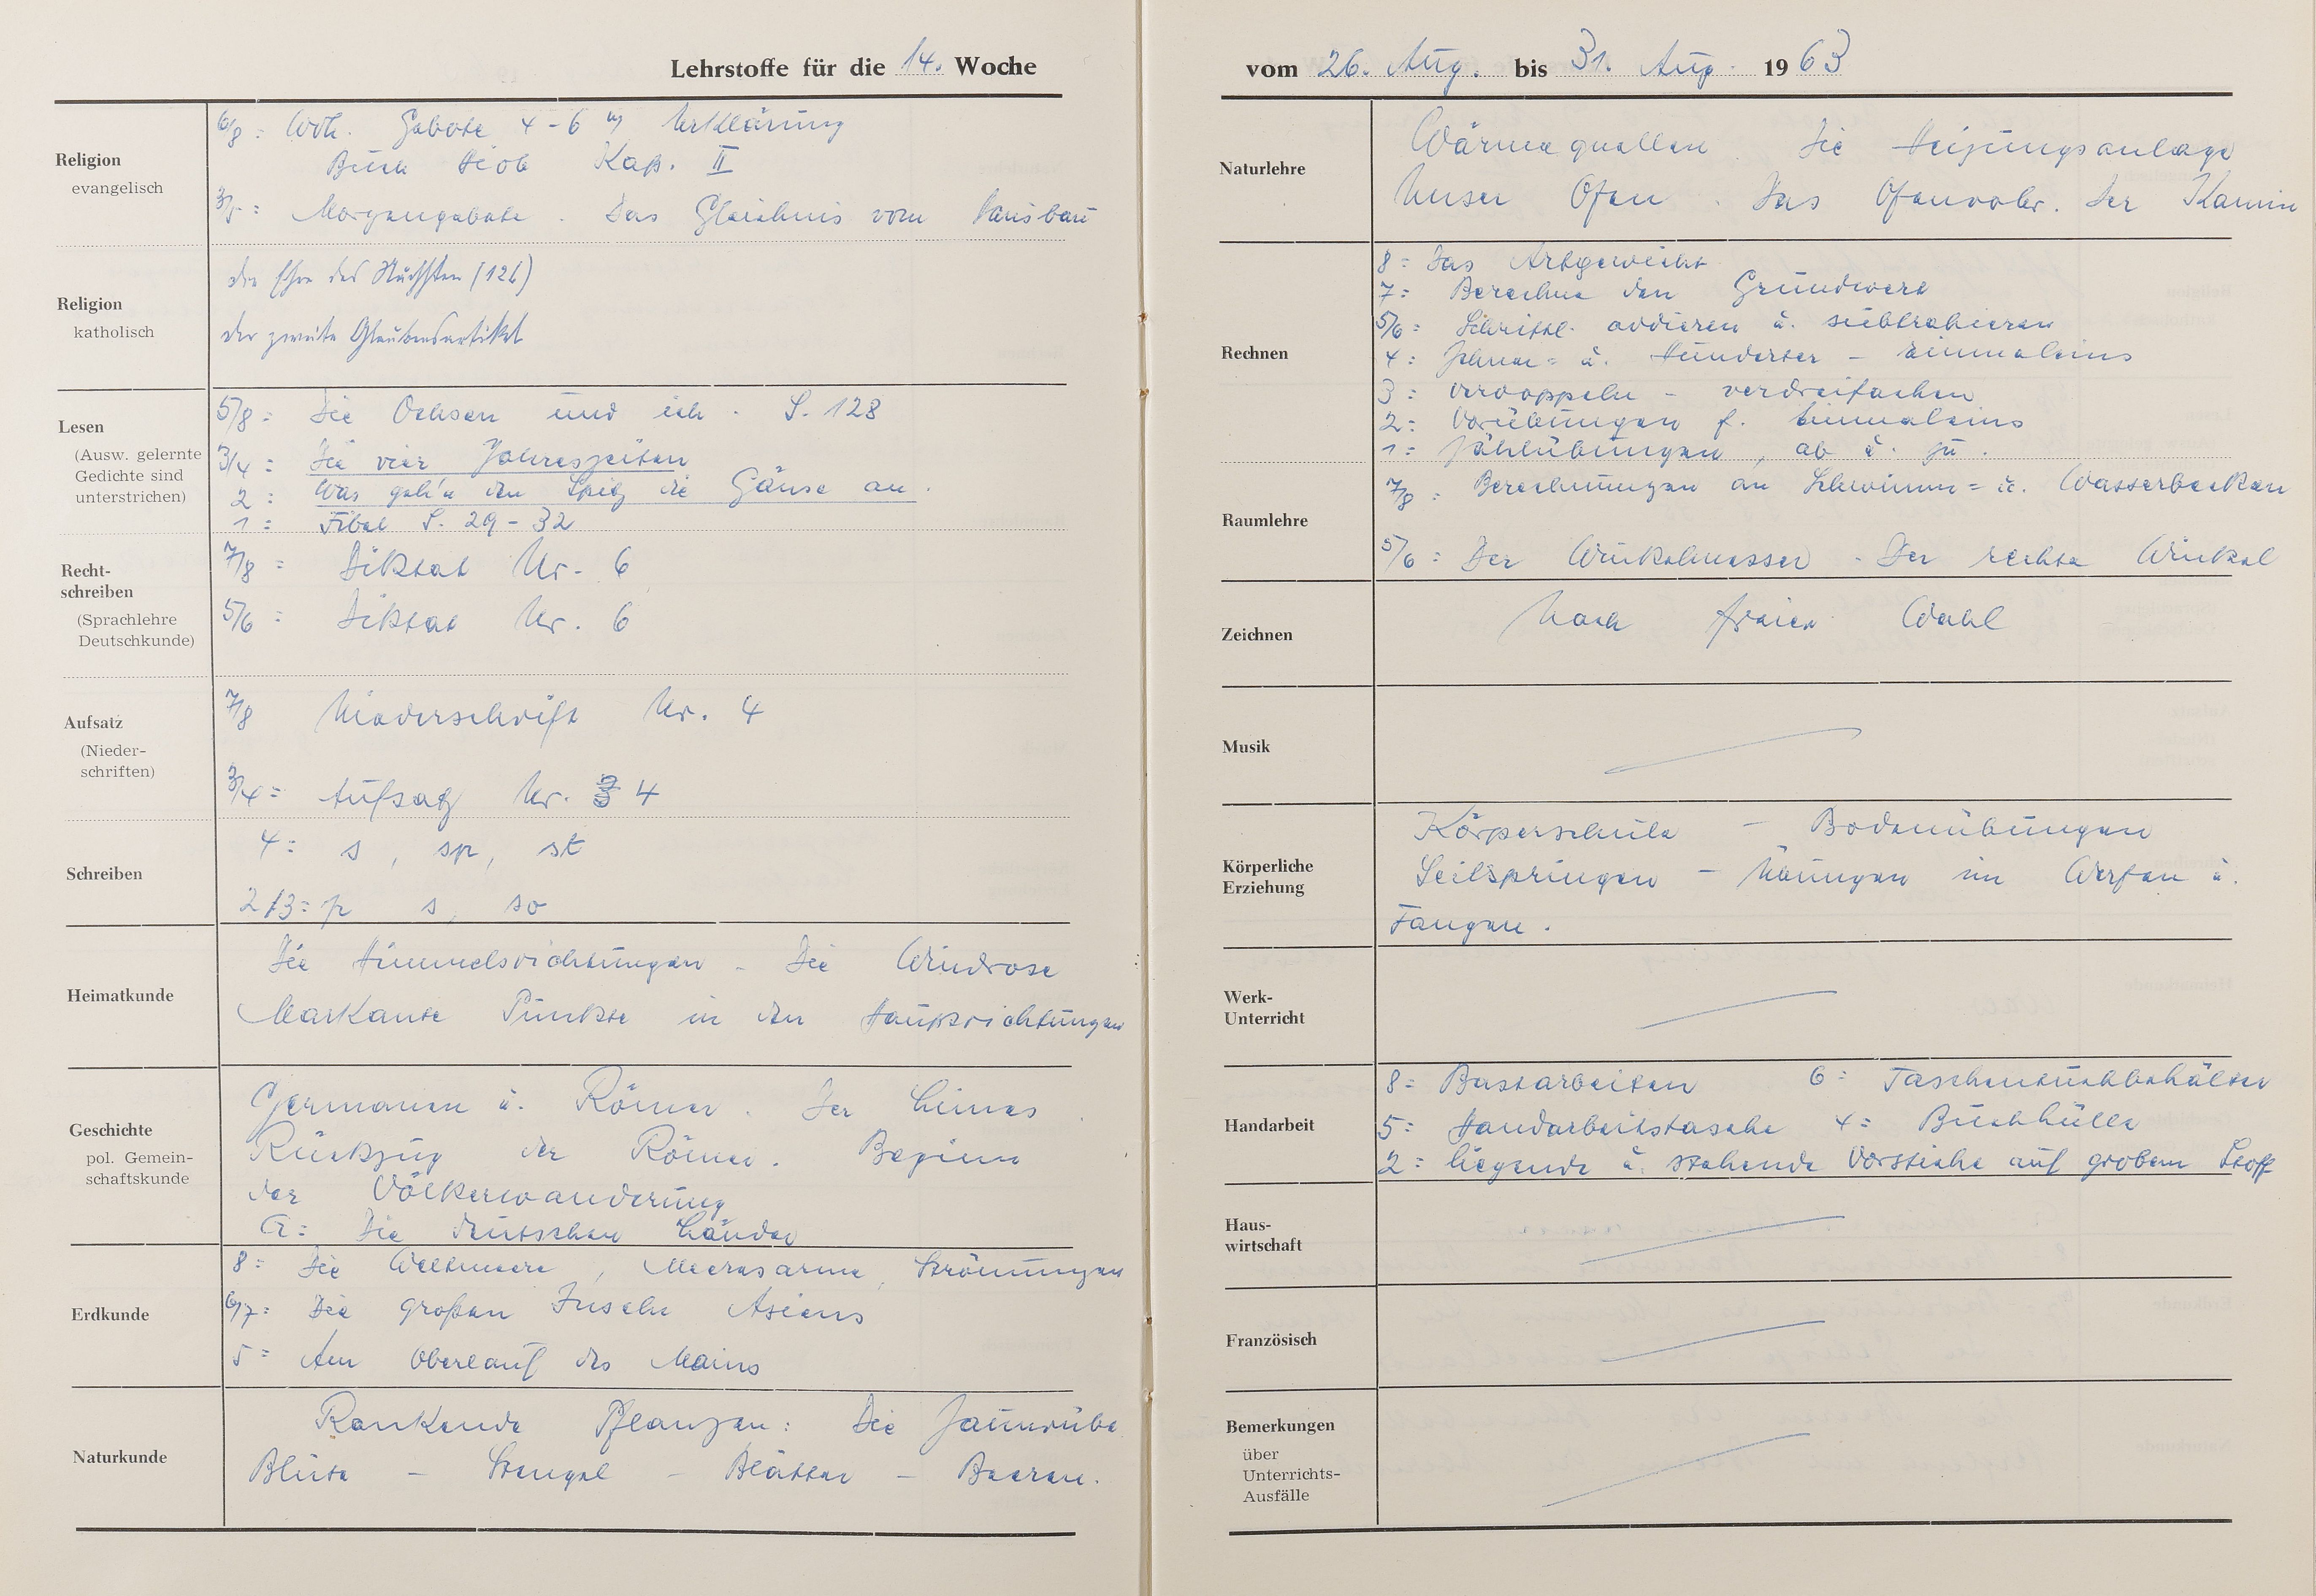 Lehrstoffe für die 14. Woche
Religion
evangelisch
6/8: Wdh. Gebote 4-6 m Erklärung
Buch Hiob Kap. II
3/5: Morgengebete. Das Gleichnis vom Hausbau
Religion
katholisch
die Ehre des Nächsten (126)
der zweite Glaubensartikel
Lesen
(Ausw. gelernte
Gedichte sind
unterstrichen)
5/8: Die Ochsen und ich. S. 128
3/4: Die vier Jahreszeiten
2: Was geh'n den Spitz die Gänse an.
1: Fibel S. 29-32
Recht-
schreiben
(Sprachlehre
Deutschkunde)
7/8: Diktat Nr. 6
5/6: Diktat Nr. 6
Aufsatz
(Nieder-
schriften)
7/8 Niederschrift Nr. 4
3/4: Aufsatz Nr. 4
Schreiben
4: s, sp, st
2/3: p s, so
Heimatkunde
Die Himmelsrichtungen - Die Windrose
Markante Punkte in den Hauptrichtungen
Geschichte
pol. Gemein-
schaftskunde
Germanen u. Römer. Der Limes
Rückzug der Römer. Beginn
der Völkerwanderung
G: Die deutschen Länder
Erdkunde
8: Die Weltmeere, Meeresarme, Strömungen
6/7: Die großen Inseln Asiens
5: Am Oberlauf des Mains
Naturkunde
Rankende Pflanzen: Die Zaunrübe
Blüte - Stengel - Blätter - Beeren.
vom 26. Aug. bis 31. Aug. 1963
Naturlehre
Wärmequellen. Die Heizungsanlage
Unser Ofen. Das Ofenrohr. Der Kamin
Rechnen
8: Das Artgewicht
7: Berechne den Grundwert
5/6: Schriftl. addieren u. subtrahieren
4: Zehner- u. Hunderter - einmaleins
3: verdoppeln - verdreifachen
2: Vorübungen f. Einmaleins
1: Zählübungen, ab u. zu.
Raumlehre
7/8: Berechnungen an Schwimm- u. Wasserbecken
5/6: Der Winkelmesser - Der rechte Winkel
Zeichnen
Nach freier Wahl
Musik
Körperliche
Erziehung
Körperschule - Bodenübungen
Seilspringen - Übungen im Werfen u.
Fangen.
Werk-
Unterricht
Handarbeit
8: Bastarbeiten 6: Taschentuchbehälter
5: Handarbeitstasche 4: Buchhülle
2: liegende u. stehende Vorstiche auf grobem Stoff
Haus-
wirtschaft
Französisch
Bemerkungen
über
Unterrichts-
Ausfälle